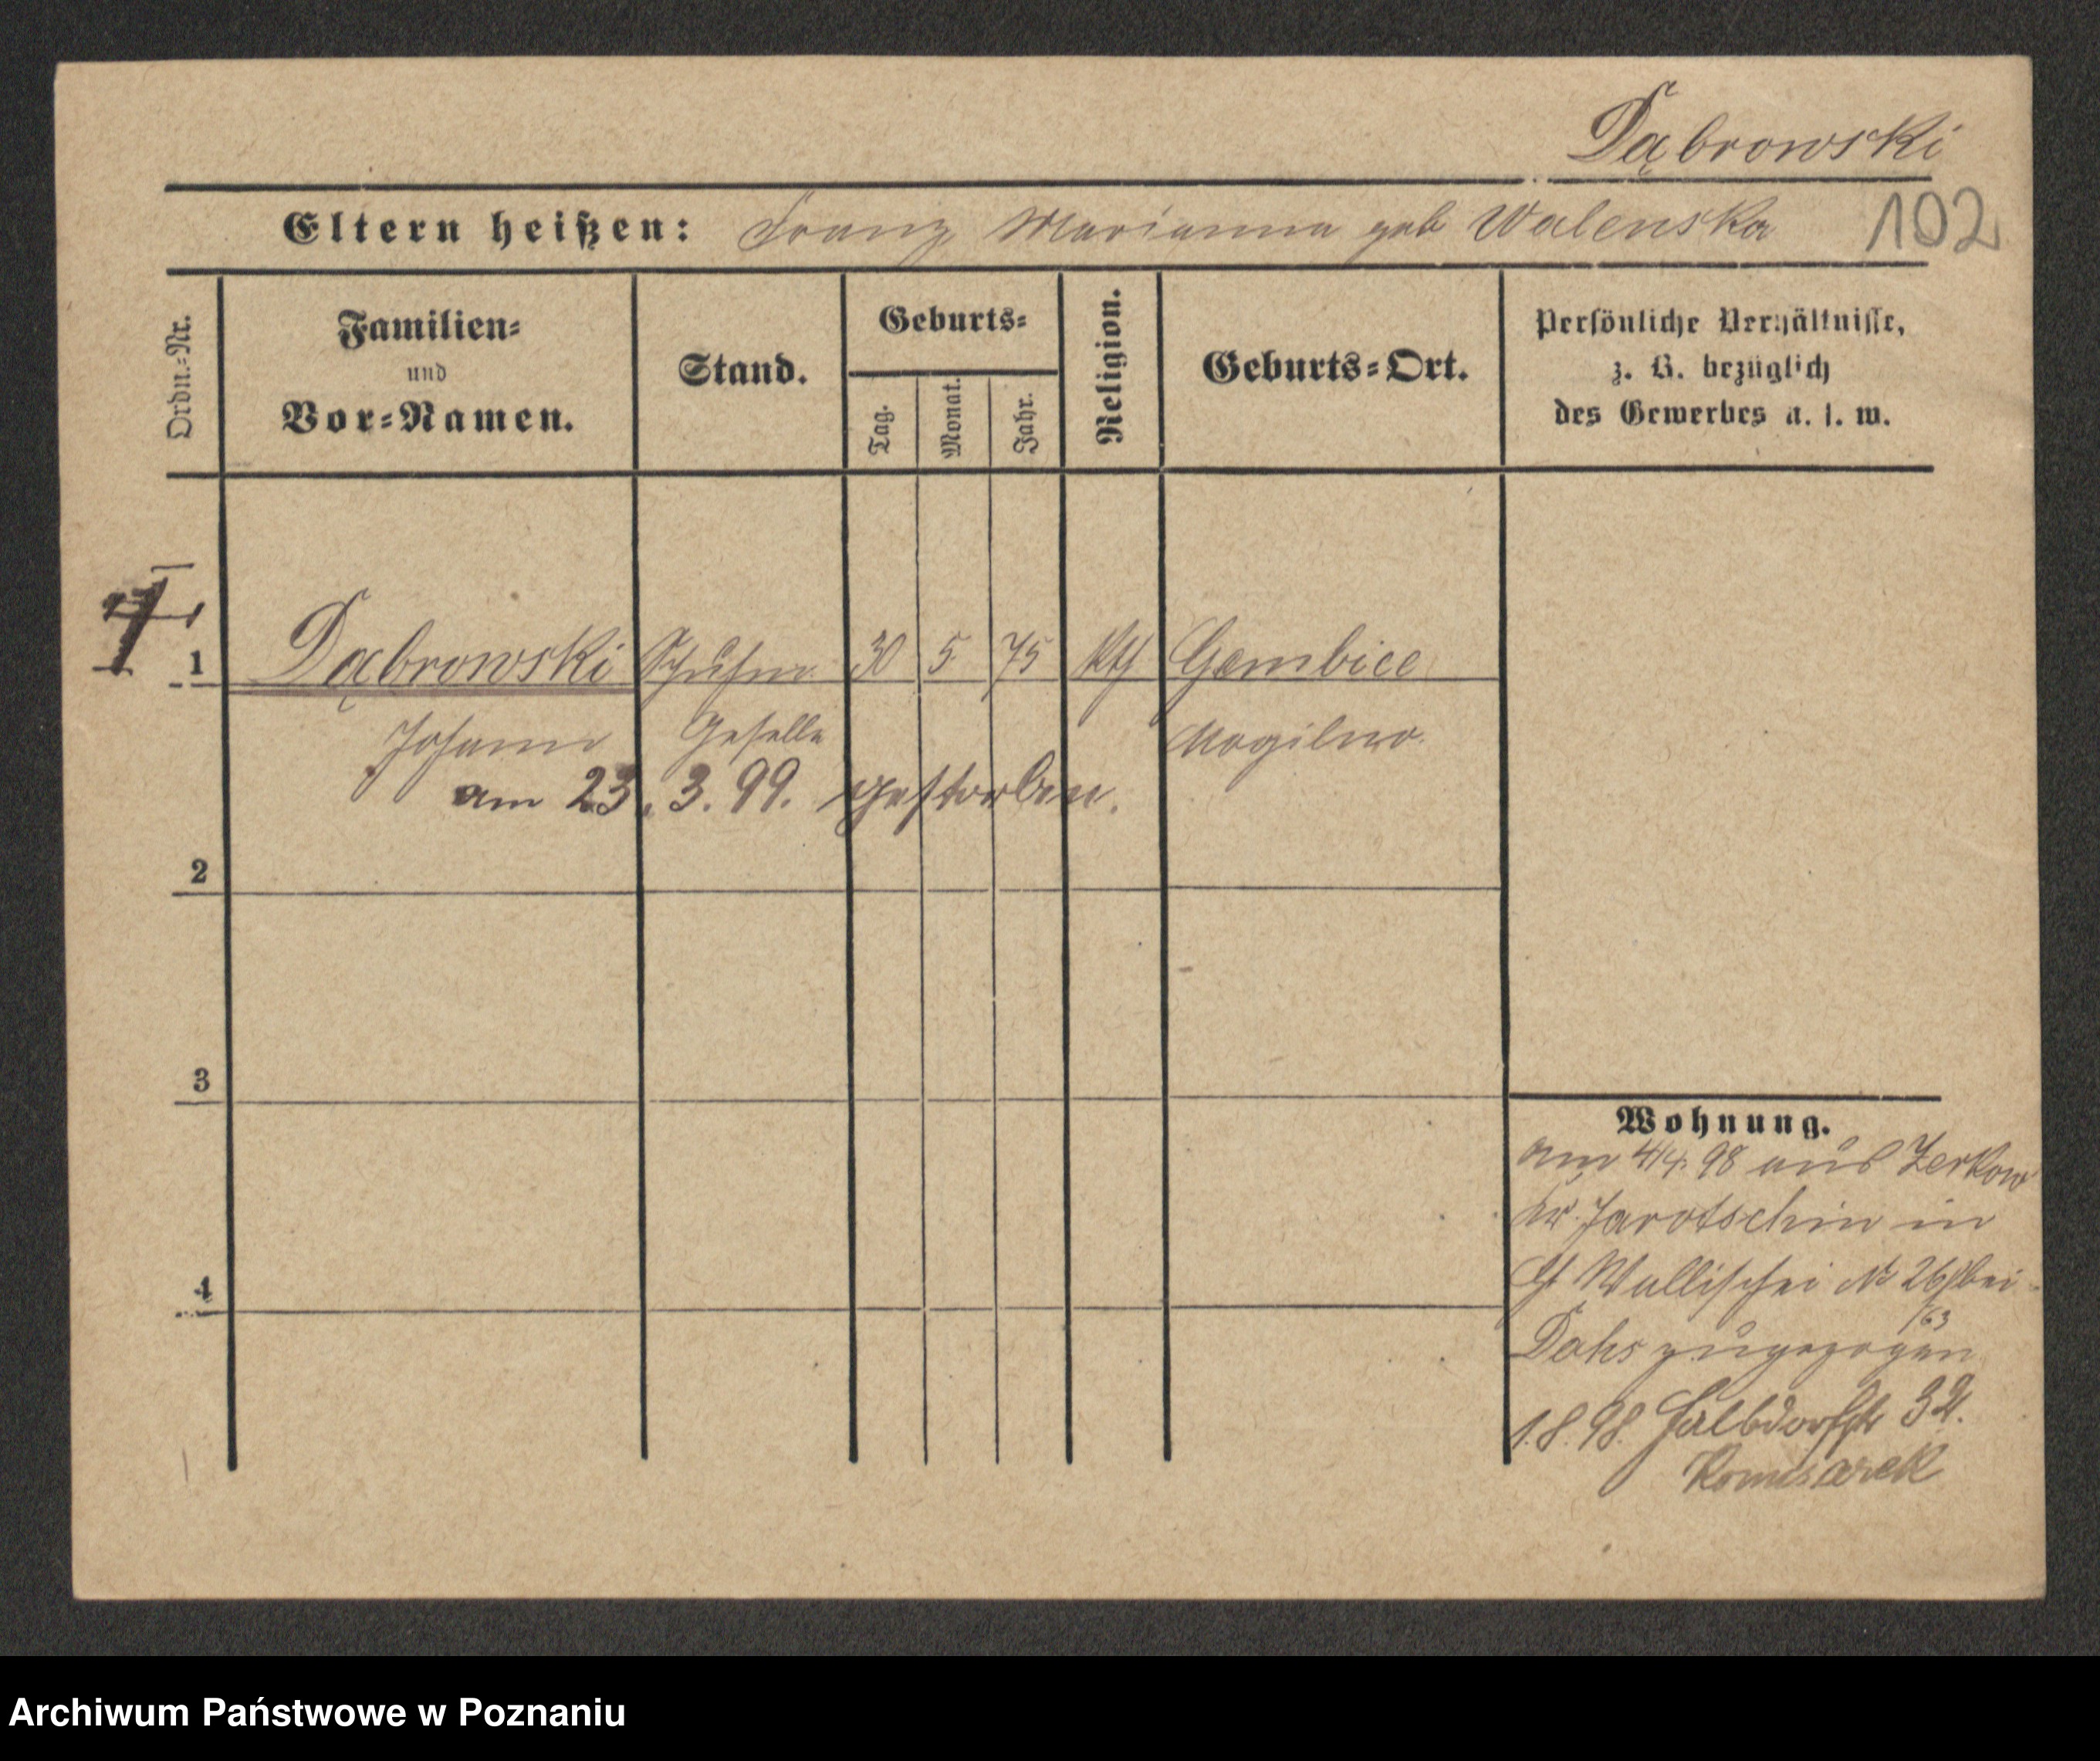 Dąbrowski
Eltern heißen: Franz Marianna geb Walenska 102
Ordn.-Nr.
Familien-
und
Vor-Namen.
Stand.
Geburts-
Tag.
Monat.
Jahr.
Religion.
Geburts-Ort.
Persönliche Verhältnisse,
z. B. bezüglich
des Gewerbes u. s. w.
1 Dąbrowski Schuhm 30 5 75 Kth Gembice
Johann Geselle Mogilno.
am 23. 3. 99. gestorben.
2
3
4
Wohnung.
am 4/4. 98 aus Zerkow
Kr. Jarotschin in
Wallischei No 26/bei
63
Dahs zugezogen
1.8.98. Halbdorfstr 32.
Komisarek
Archiwum Państwowe w Poznaniu